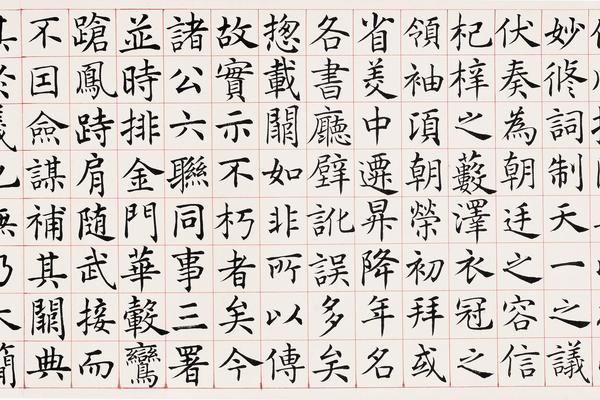 妙修詞制天一之議
伏奏為朝廷之容信
杞梓之藪澤衣冠之
領袖項朝榮初拜或
省美中遷昇降年名
各書廳壁訛誤多矣
揔載關如非所以傳
故實示不朽者矣今
諸公六聯同事三署
並時排金門華轂鸞
蹌鳳跱肩隨武接而
不囯僉謀補其關典